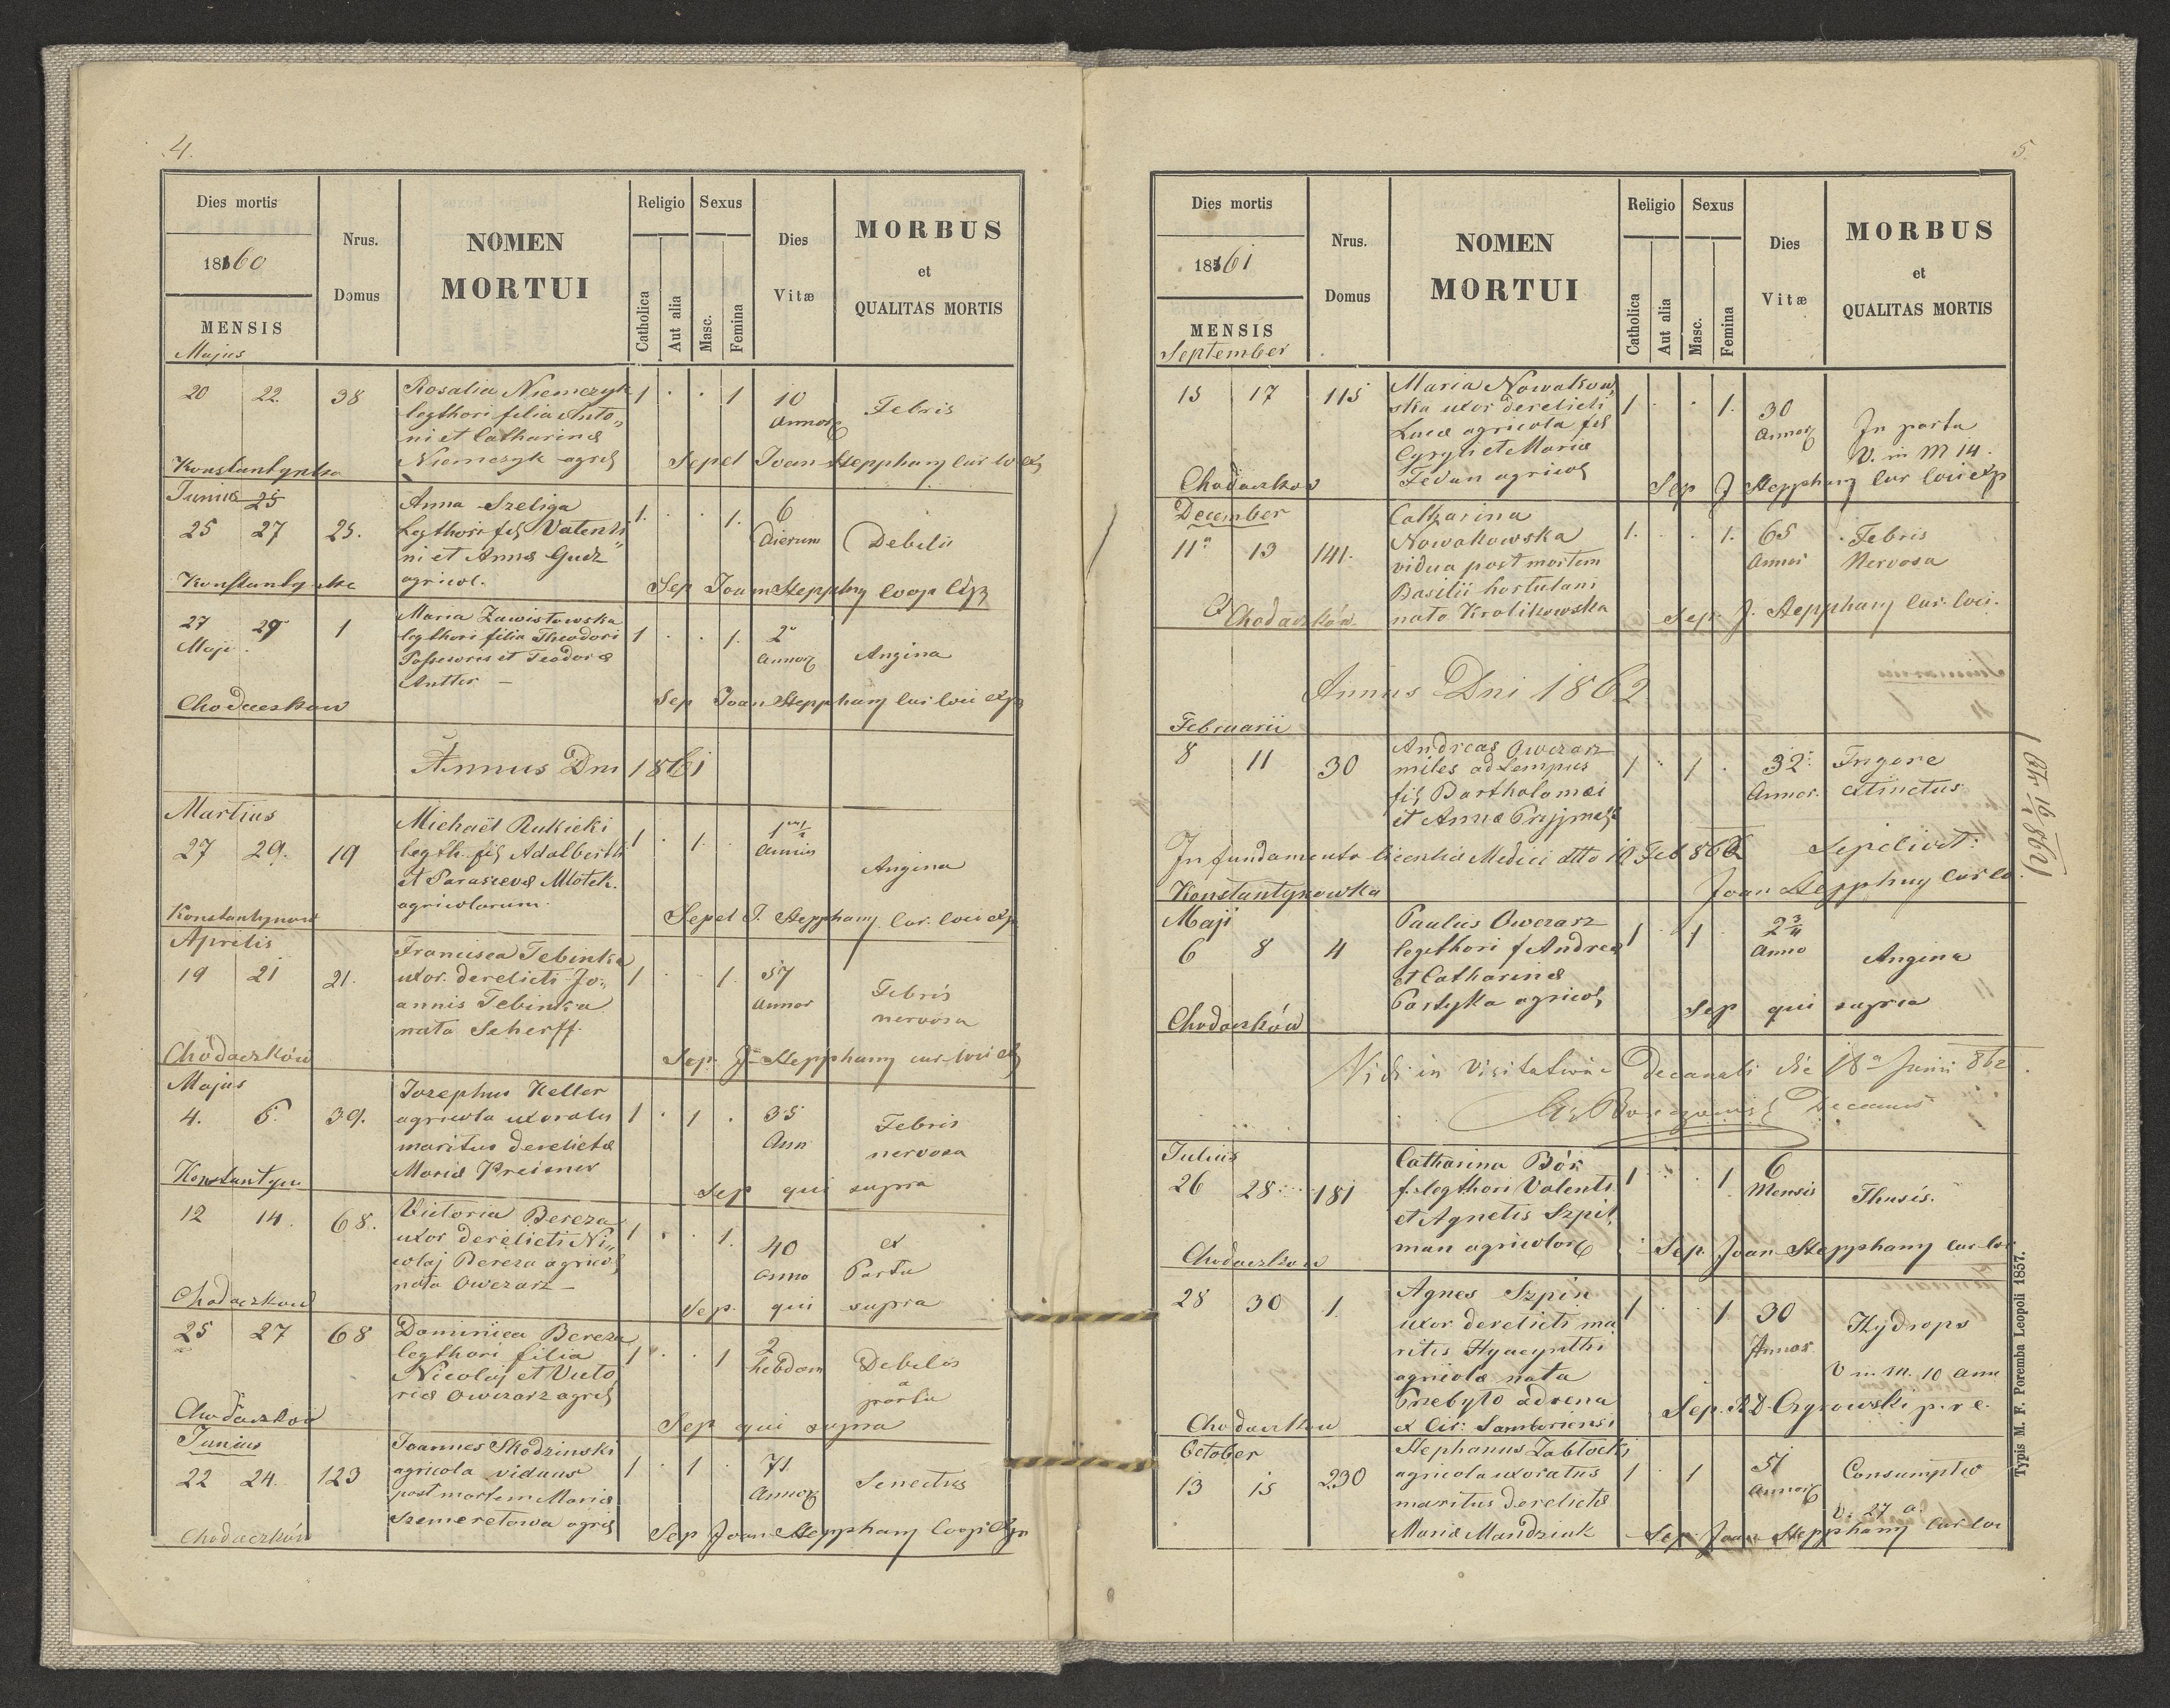 4.
Dies mortis
1860
MENSIS
Majus
Nrus.
Domus
NOMEN
MORTUI
Religio
Catholica
Aut alia
Sexus
Masc.
Femina
Dies
Vitæ
MORBUS
et
QUALITAS MORTIS
20 22. 38 Rosalia Niemczyk 1 . . 1 10 Febris
legthori filia Anto„ Annor
ni et Catharinæ
Niemczyk agric
Sepel Joan Stepphany cur loci
Junius 25
25 27 25. Anna Szeliga 1. . . 1. 6 Debilis
Legthori fil Valenti„ dierum
ni et Annæ Gudz
agricol.
Sep Joan Stepphny coop
27 29 1 Maria Zawistowska 1 . . 1. 2 Angina
Maji legthori filia Theodori annor
Possesoris et Teodoræ
Antter
Chodaczkow Sep Joan Stepphany cur loci exp
Annus Dni 1861
Martius
27 29. 19 Michaël Rukicki 1 . 1. . 1 Angina
legth. fil Adalberti
et Parascevæ Mlotek.
agricolarum.
Konstantynow Sepel J. Stepphany Cur. loci exp
Aprilis
19 21 21. Francisca Tebinka 1 . . 1. 57 Febris
uxor. derelicti Jo„ annor nervosa
annis Tebinka
nata Scherff.
Chodaczków Sep. J. Stepphany cur. loci
Majus
4. 6. 39. Josephus Keller 1 . 1 . 35 Febris
agricola uxoratus Ann nervosa
maritus derelictæ
Mariæ Preisner
Konstantyn Sep qui supra
12 14. 68. Victoria Bereza 1 . . 1. 40 ex
uxor derelicti Ni„ anno Partu
colaj Bereza agricol
nata Owczarz
Chodaczkow Sep. qui supra
25 27 68 Dominica Bereza 1 . . 1 2 Debilis
legthori filia hebdom a
Nicolaj et Victo partu
riæ Owczarz agric
Chodaczkow Sep qui supra
Junius
22 24. 123 Joannes Skodzinski 1 . 1 . 71 Senectus
agricola viduus annor
post mortem Mariæ
Szemeretowa agric
Chodaczków Sep Joan Stepphany Coop Exp
5.
Dies mortis
1861
MENSIS
September
Nrus.
Domus
NOMEN
MORTUI
Religio
Catholica
Aut alia
Sexus
Masc.
Femina
Dies
Vitæ
MORBUS
et
QUALITAS MORTIS
15 17 115 Maria Nowakow„ 1 . . 1. 30 In partu
ska uxor derelicti Annor V. in M 14.
Lucæ agricola fil
Cyryli et Mariæ
Fedun agricol
Chodaczkow Sep J Stepphany Cur loci exp
December
11a 13 141. Catharina 1. . . 1. 65 Febris
Nowakowska Annor Nervosa
vidua post mortem
Basilii hortulani
nata Krolikowska
Chodaczków Sep. J. Stepphany Cur. loci.
Annus Dni 1862
Februarii
8 11 30 Andreas Owczarz 1 . 1 . 32 Frigore
miles ad tempus Annor. extinctus
fil Bartholomæi
et Annæ
In fundamento licentiæ Medici dtto 10 Feb 862 Sepelivit:
Konstantynowka Joan Stepphny Cur lo.
Maji
6 8 4 Paulus Owczarz 1 . 1 2 3/4 Angina
legithori f Andreæ Anno
et Catharinæ
Pastyka agricol
Chodaczków Sep qui supra
Vidi in Visitatione Decanali die 18a Junii 862
Decanus
Julius
26 28 181 Catharina Bór 1 . . 1 6 Thusis.
f. legthori Valenti Mensis
et Agnetis Szpil„
man agricolor
Chodaczkow Sep. Joan Stepphany Cur loc
28 30 1. Agnes Szpin 1 . . 1 30 Hydrops
uxor derelicti ma Annos
ritis Hyacynthi V in m. 10 ann
agricolæ nata
Przebyto advena
ex Cir: Samboriensi
Chodaczkow Sep. RD Cygrowski p. r e.
October
13 15 230 Stephanus Zabłocki 1 . 1 51 Consumptio
agricola uxoratus annor V. 27 a.
maritus derelictæ
Mariæ Mandziuk
Sep Joan Stepphany Cur loci
Typis M. F. Poremba Leopoli 1857.